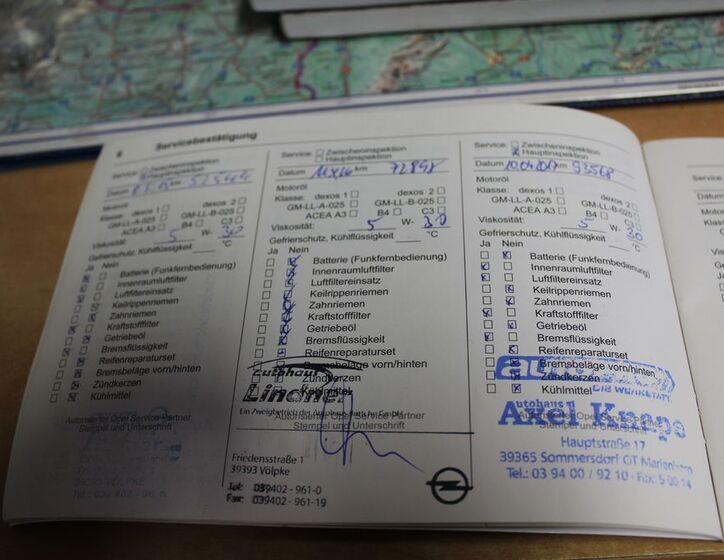 6 Servicebestätigung
Service: Zwischeninspektion
Hauptinspektion
Datum km 52544
Motoröl
Klasse: dexos 1 dexos 2
GM-LL-A-025 GM-LL-B-025
ACEA A3 B4 C3
Viskosität: 5 W- 30
Gefrierschutz, Kühlflüssigkeit °C
Ja Nein
Batterie (Funkfernbedienung)
Innenraumluftfilter
Luftfiltereinsatz
Keilrippenriemen
Zahnriemen
Kraftstofffilter
Getriebeöl
Bremsflüssigkeit
Reifenreparaturset
Bremsbeläge vorn/hinten
Zündkerzen
Kühlmittel
Autorisierter Opel Service-Partner
Stempel und Unterschrift
39393 VÖLPKE
Tel.: 039 402 - 96
Service: Zwischeninspektion
Hauptinspektion
Datum km 72898
Motoröl
Klasse: dexos 1 dexos 2
GM-LL-A-025 GM-LL-B-025
ACEA A3 B4 C3
Viskosität: 5 W- 30
Gefrierschutz, Kühlflüssigkeit °C
Ja Nein
Batterie (Funkfernbedienung)
Innenraumluftfilter
Luftfiltereinsatz
Keilrippenriemen
Zahnriemen
Kraftstofffilter
Getriebeöl
Bremsflüssigkeit
Reifenreparaturset
Bremsbeläge vorn/hinten
Zündkerzen
autohaus
Lindner
Ein Zweigbetrieb der Autohaus GmbH
Autorisierter Opel Service-Partner
Stempel und Unterschrift
Friedensstraße 1
39393 Völpke
Tel: 039402 - 961-0
Fax: 039402 - 961-19
Service: Zwischeninspektion
Hauptinspektion
Datum 10.04.2017 km 93568
Motoröl
Klasse: dexos 1 dexos 2
GM-LL-A-025 GM-LL-B-025
ACEA A3 B4 C3
Viskosität: 5 W- 30
Gefrierschutz, Kühlflüssigkeit °C
Ja Nein
Batterie (Funkfernbedienung)
Innenraumluftfilter
Luftfiltereinsatz
Keilrippenriemen
Zahnriemen
Kraftstofffilter
Getriebeöl
Bremsflüssigkeit
Reifenreparaturset
Bremsbeläge vorn/hinten
Zündkerzen
DIE WERKSTATT
Kühlmittel
autohaus
Axel Knape
Autorisierter Opel Service-Partner
Stempel und Unterschrift
Hauptstraße 17
39365 Sommersdorf OT Marienborn
Tel.: 03 94 00 / 92 10 · Fax: 5 00 14